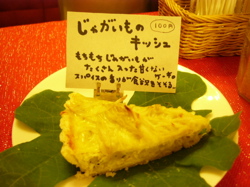 じゃがいもの
100円
キッシュ
もちもちじゃがいもが
たくさん入った甘くない
ケーキ。
スパイスの香りが食欲をそそる。